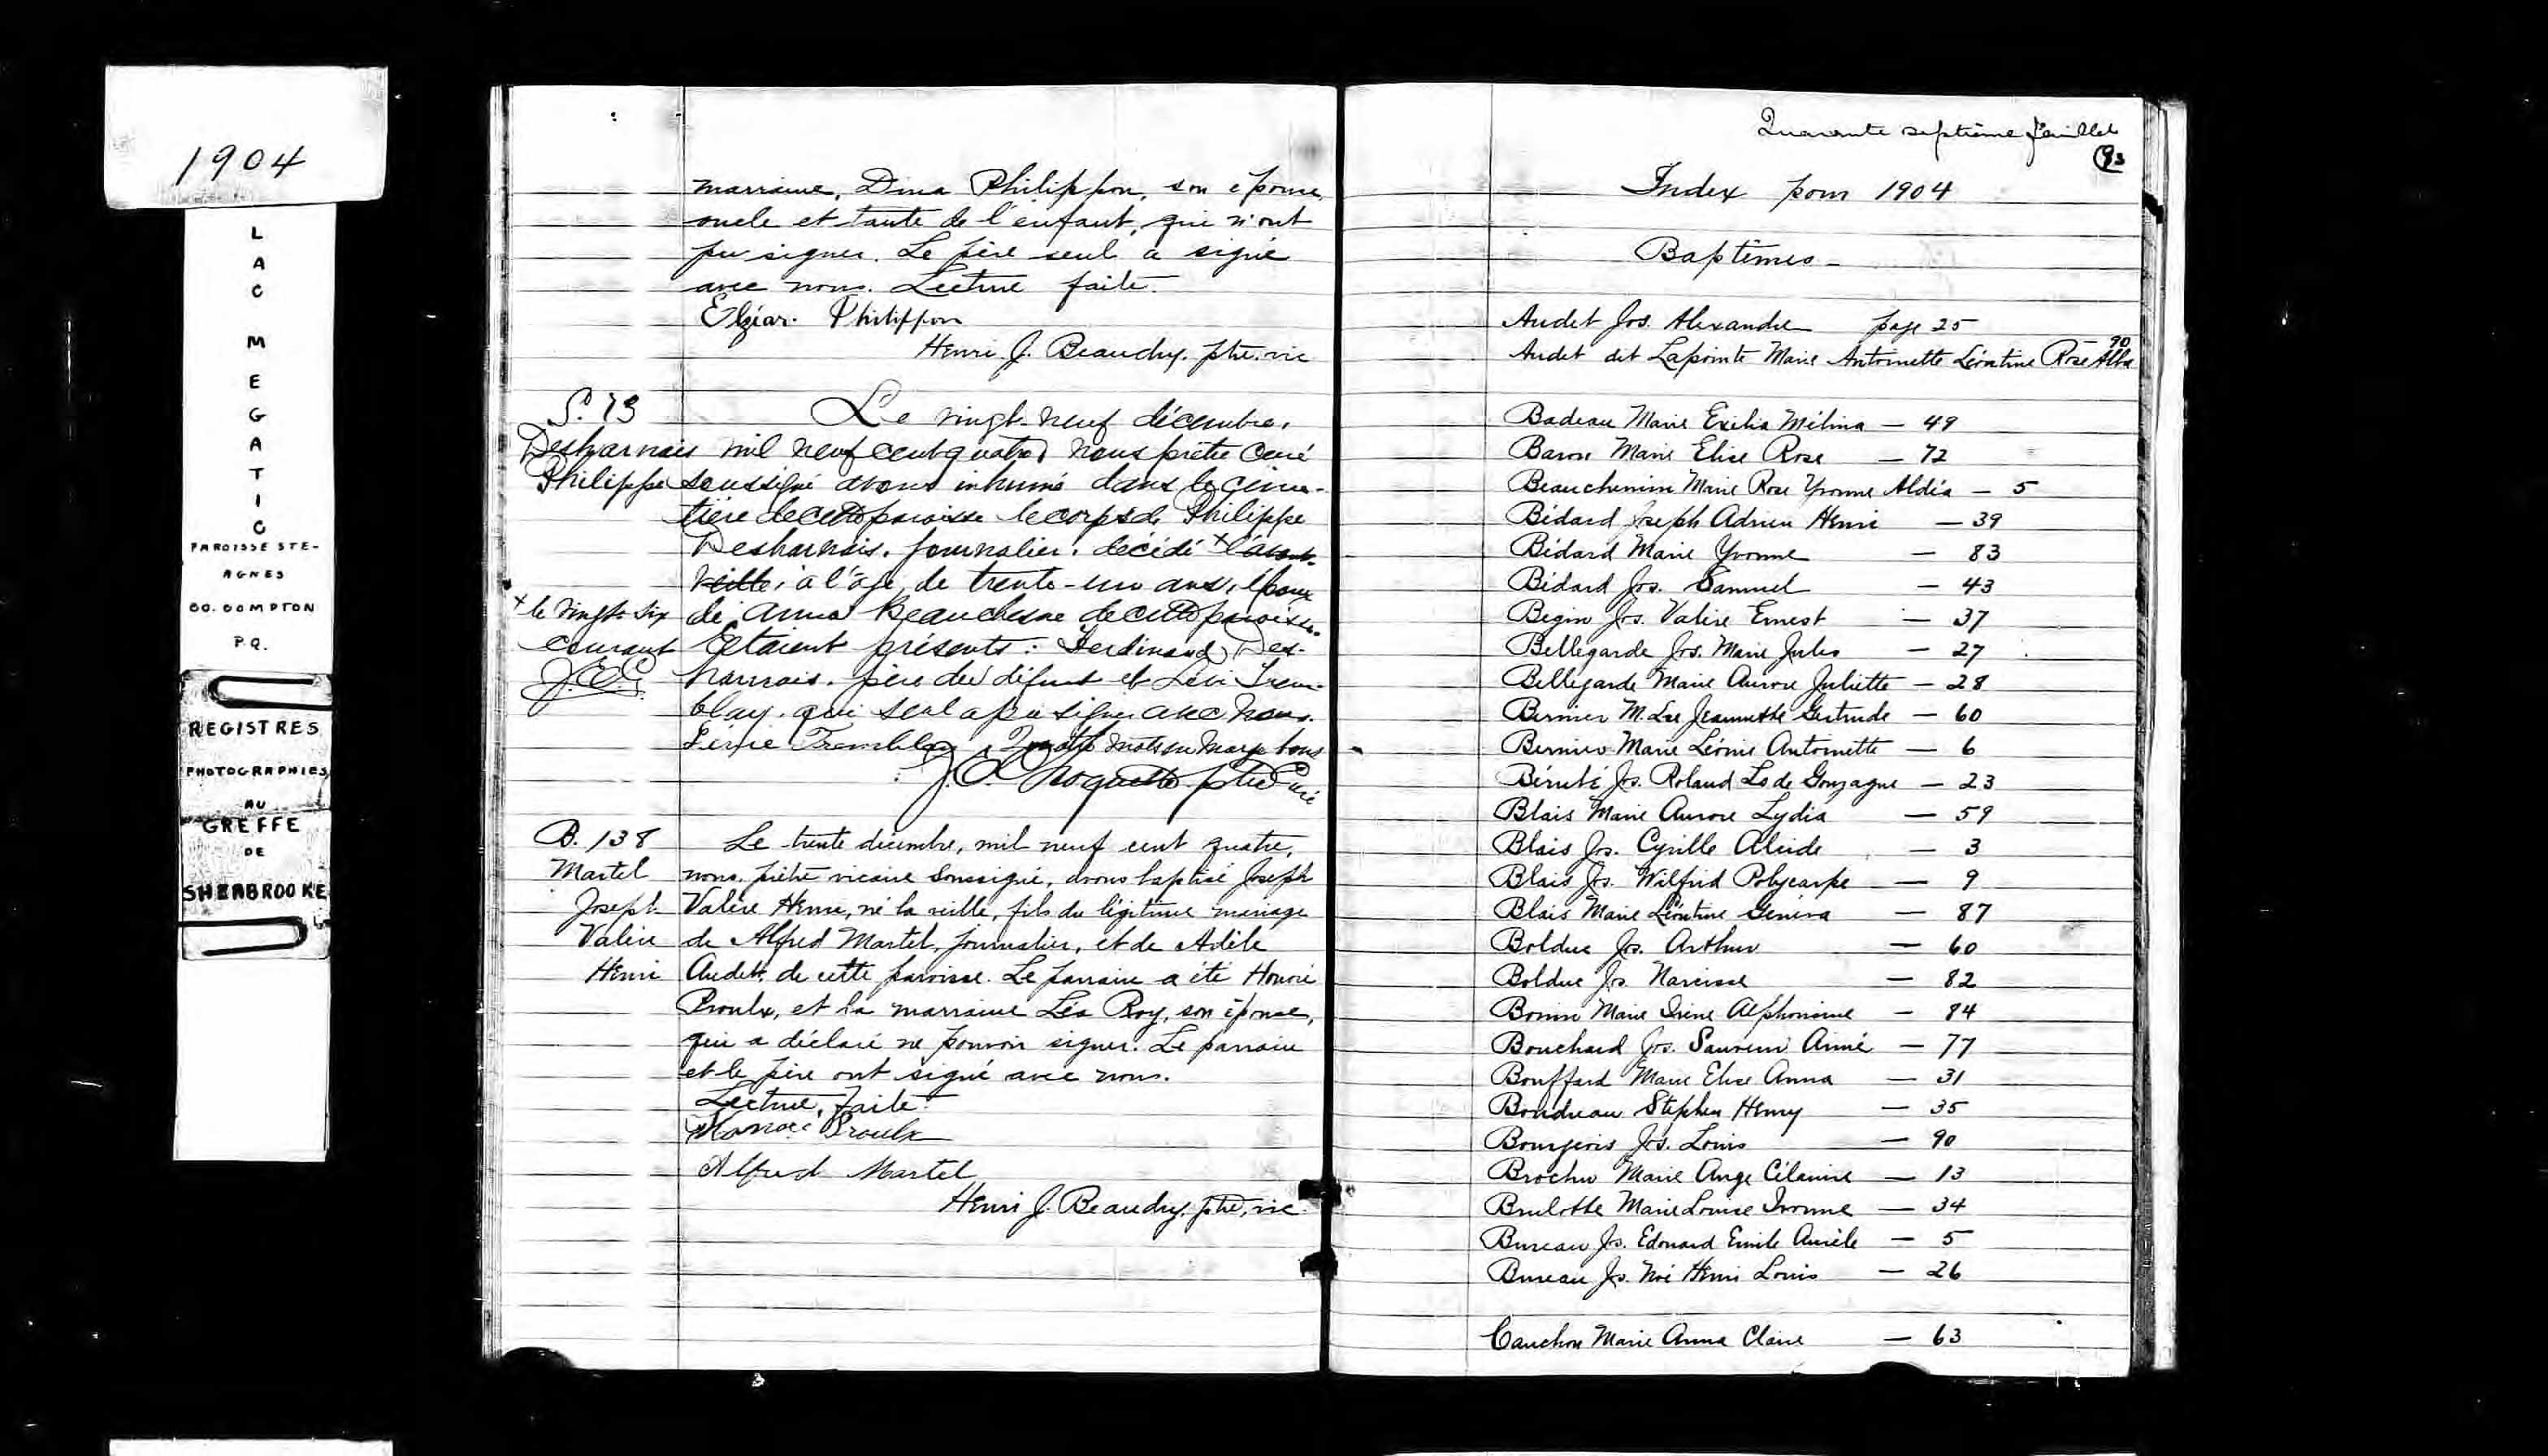 1904
LAC MEGATIC
PAROISSE STE-
AGNES
CO. COMPTON
P.Q.
REGISTRES
PHOTOGRAPHIES
AU
GREFFE
DE
SHERBROOKE
marraine, Dina Philippon, son épouse,
oncle et tante de l'enfant, qui n'ont
pu signer. Le père seul a signé
avec nous. Lecture faite.
Elzéar Philippon
Henri J. Beaudry, ptre. vic
S. 73
Desharnais
Philippe
Le vingt-neuf décembre,
mil neuf cent quatre nous prêtre curé
soussigné avons inhumé dans le cime-
tière de cette paroisse le corps de Philippe
Desharnais, journalier, décédé × l'avant-
veille, à l'âge de trente-un ans, époux
de Anna Beauchesne de cette paroisse.
Etaient présents : Ferdinand Des-
harnais, père du défunt et Levi Trem-
blay, qui seul a pu signer avec nous.
× le vingt-six
courant
J.E.C.
Tremblay mots en marge bons
J. E. Choquette ptre Curé
B. 138
Martel
Joseph
Valère
Henri
Le trente décembre, mil neuf cent quatre,
nous, prêtre vicaire soussigné, avons baptisé Joseph
Valère Henri, né la veille, fils du légitime mariage
de Alfred Martel, journalier, et de Adèle
Audet, de cette paroisse. Le parrain a été Honoré
Proulx, et la marraine Léa Roy, son épouse,
qui a déclaré ne pouvoir signer. Le parrain
et le père ont signé avec nous.
Lecture faite.
Honoré Proulx
Alfred Martel
Henri J. Beaudry, ptre, vic.
Quarante septième feuillet
93
Index pour 1904
Baptêmes -
Audet Jos. Alexandre page 25
Audet dit Lapointe Marie Antoinette Léontine Rose Alba — 90
Badeau Marie Exilia Mélina — 49
Baron Marie Elise Rose — 72
Beauchemin Marie Rose Yvonne Aldéa — 5
Bédard Joseph Adrien Henri — 39
Bédard Marie Yvonne — 83
Bédard Jos. Samuel — 43
Begin Jos. Valère Ernest — 37
Bellegarde Jos. Marie Jules — 27
Bellegarde Marie Aurore Juliette — 28
Bernier M. Lse Jeannette Gertrude — 60
Bernier Marie Léonie Antoinette — 6
Bérubé Jos. Roland Ls de Gonzague — 23
Blais Marie Aurore Lydia — 59
Blais Jos. Cyrille Alcide — 3
Blais Jos. Wilfrid Polycarpe — 9
Blais Marie Léontine Généva — 87
Bolduc Jos. Arthur — 60
Bolduc Jos. Narcisse — 82
Bonin Marie Irène Alphonsine — 84
Bouchard Jos. Aimé — 77
Bouffard Marie Elise Anna — 31
Boudreau Stephen Henry — 35
Bourgeois Jos. Louis — 90
Brochu Marie Ange Célanire — 13
Brulotte Marie Louise Ivonne — 34
Bureau Jos. Edouard Emile Aurèle — 5
Bureau Jos. Noé Henri Louis — 26
Cauchon Marie Anna Claire — 63